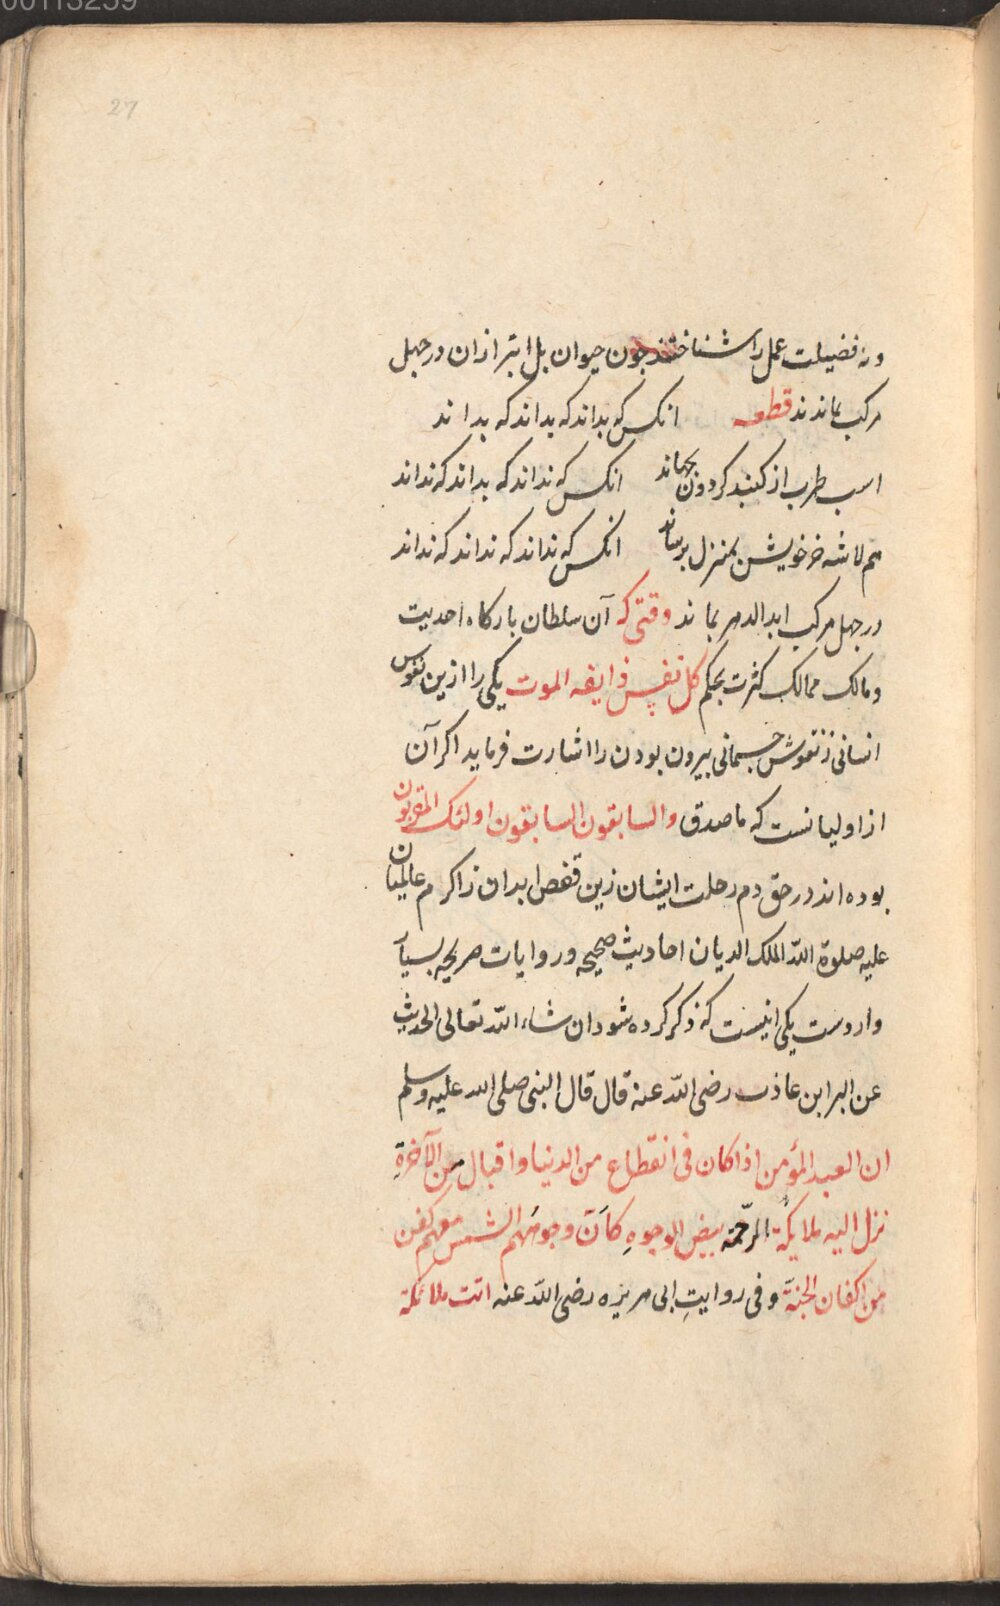 00113259
27
ونه فضیلت عمل را شناختند چون حیوان بل ابتر ازان در جهل
مرکب بماندند قطعه انکس که بداند که بداند که بداند
اسب طرب از کنبد کردون بجهاند انکس که نداند که بداند که نداند
هم لاشه خر خویش بمنزل برساند انکس که نداند که نداند که نداند
در جهل مرکب ابد الدهر بماند وقتی که آن سلطان بارکاه احدیت
ومالک ممالک کثرت بحکم کل نفس ذایقه الموت یکی را ازین نفوس
انسانی ز نقوش جسمانی بیرون بودن را اشارت فرماید اکر آن
از اولیانست که ماصدق والسابقون السابقون اولئک المقربون
بوده اند در حق دم رحلت ایشان زین قفص ابدان ز اکرم عالمیان
علیه صلوة الله الملک الدیان احادیث صحیحه و روایات صریحه بسیار
واردست یکی اینست که ذکر کرده شود ان شاء الله تعالی الحدیث
عن البرا ابن عاذب رضی الله عنه قال قال النبی صلی الله علیه وسلم
ان العبد المؤمن اذا کان فی انقطاع من الدنیا واقبال من الآخرةِ
نزل الیه ملایکة الرحّمة بیض الوجوهِ کاَنّ وجوهَهم الشمس معهم کفن
من اکفان الجنَّة وفی روایتِ ابی هریره رضی الله عنه اتت ملائکة